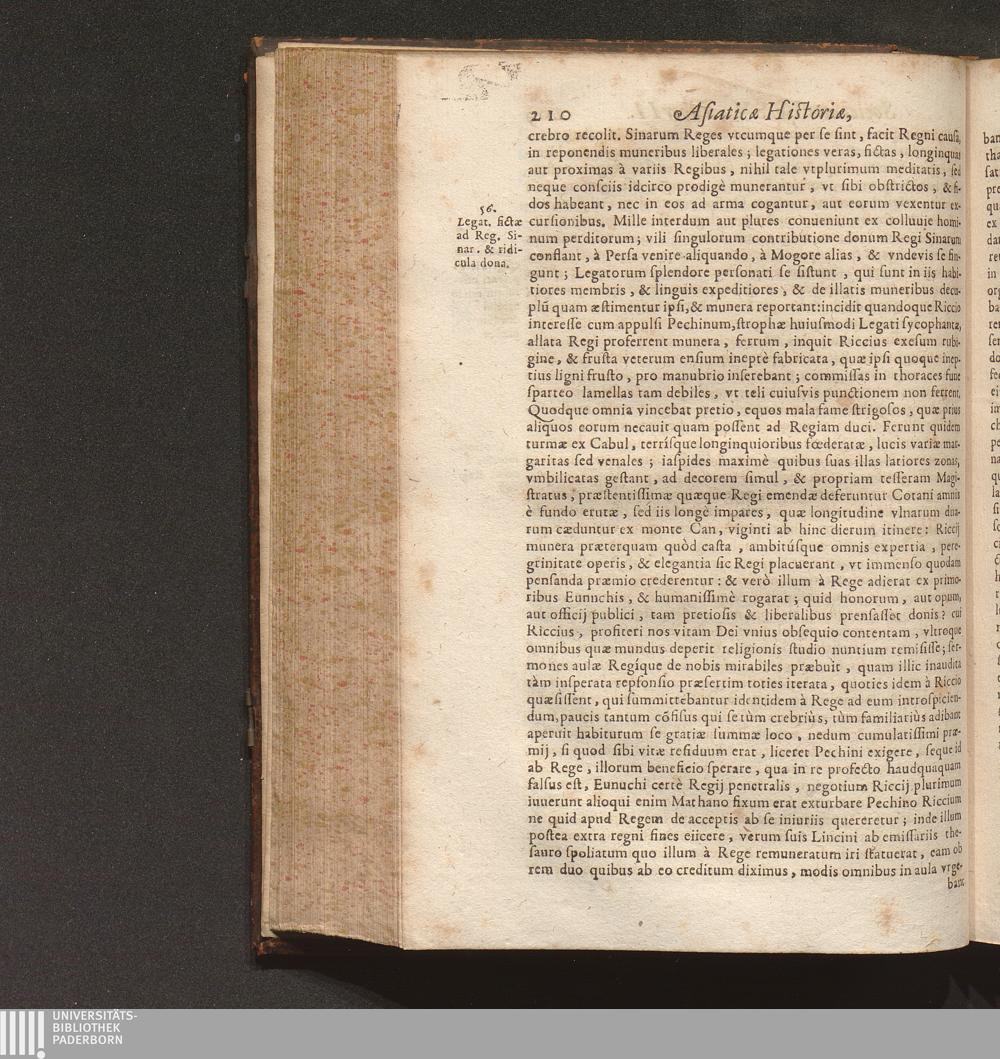 210 Asiaticæ Historiæ,
crebro recolit. Sinarum Reges vtcumque per se sint, facit Regni causa,
in reponendis muneribus liberales; legationes veras, fictas, longinquas
aut proximas à variis Regibus, nihil tale vtplurimum meditatis, sed
neque consciis idcirco prodigè munerantur, vt sibi obstrictos, & fi-
dos habeant, nec in eos ad arma cogantur, aut eorum vexentur ex-
56.
Legat. fictæ
ad Reg. Si-
nar. & ridi-
cula dona.
cursionibus. Mille interdum aut plures conueniunt ex colluuie homi-
num perditorum; vili singulorum contributione donum Regi Sinarum
conflant, à Persa venire aliquando, à Mogore alias, & vndevis se fin-
gunt; Legatorum splendore personati se sistunt, qui sunt in iis habi-
tiores membris, & linguis expeditiores, & de illatis muneribus decu-
plũ quam æstimentur ipsi, & munera reportant: incidit quandoque Riccio
interesse cum appulsi Pechinum, strophæ huiusmodi Legati sycophantæ,
allata Regi proferrent munera, ferrum, inquit Riccius exesum rubi-
gine, & frusta veterum ensium ineptè fabricata, quæ ipsi quoque inep-
tius ligni frusto, pro manubrio inserebant; commissas in thoraces fune
sparteo lamellas tam debiles, vt teli cuiusvis punctionem non ferrent,
Quodque omnia vincebat pretio, equos mala fame strigosos, quæ prius
aliquos eorum necauit quam possent ad Regiam duci. Ferunt quidem
turmæ ex Cabul, terrísque longinquioribus fœderatæ, lucis variæ mar-
garitas sed venales; iaspides maximè quibus suas illas latiores zonas,
vmbilicatas gestant, ad decorem simul, & propriam tesseram Magi-
stratus, præstentissimæ quæque Regi emendæ deferuntur Cotani amnis
è fundo erutæ, sed iis longè impares, quæ longitudine vlnarum dua-
rum cæduntur ex monte Can, viginti ab hinc dierum itinere: Riccij
munera præterquam quòd casta, ambitúsque omnis expertia, pere-
grinitate operis, & elegantia sic Regi placuerant, vt immenso quodam
pensanda præmio crederentur: & verò illum à Rege adierat ex primo-
ribus Eunnchis, & humanissimè rogarat; quid honorum, aut opum,
aut officij publici, tam pretiosis & liberalibus prensasset donis? cui
Riccius, profiteri nos vitam Dei vnius obsequio contentam, vltroque
omnibus quæ mundus deperit religionis studio nuntium remisisse; ser-
mones aulæ Regíque de nobis mirabiles præbuit, quam illic inaudita
tàm insperata repsonsio præsertim toties iterata, quoties idem à Riccio
quæsissent, qui summittebantur identidem à Rege ad eum introspicien-
dum, paucis tantum cõfisus qui se tùm crebriùs, tùm familiariùs adibant
aperuit habiturum se gratiæ summæ loco, nedum cumulatissimi præ-
mij, si quod sibi vitæ residuum erat, liceret Pechini exigere, seque id
ab Rege, illorum beneficio sperare, qua in re profecto haudquaquam
falsus est, Eunuchi certè Regij penetralis, negotium Riccij plurimum
iuuerunt alioqui enim Mathano fixum erat exturbare Pechino Riccium
ne quid apud Regem de acceptis ab se iniuriis quereretur; inde illum
postea extra regni fines eiicere, vèrum suis Lincini ab emissariis the-
sauro spoliatum quo illum à Rege remuneratum iri statuerat, eam ob
rem duo quibus ab eo creditum diximus, modis omnibus in aula vrge-
bant
UNIVERSITÄTS-
BIBLIOTHEK
PADERBORN